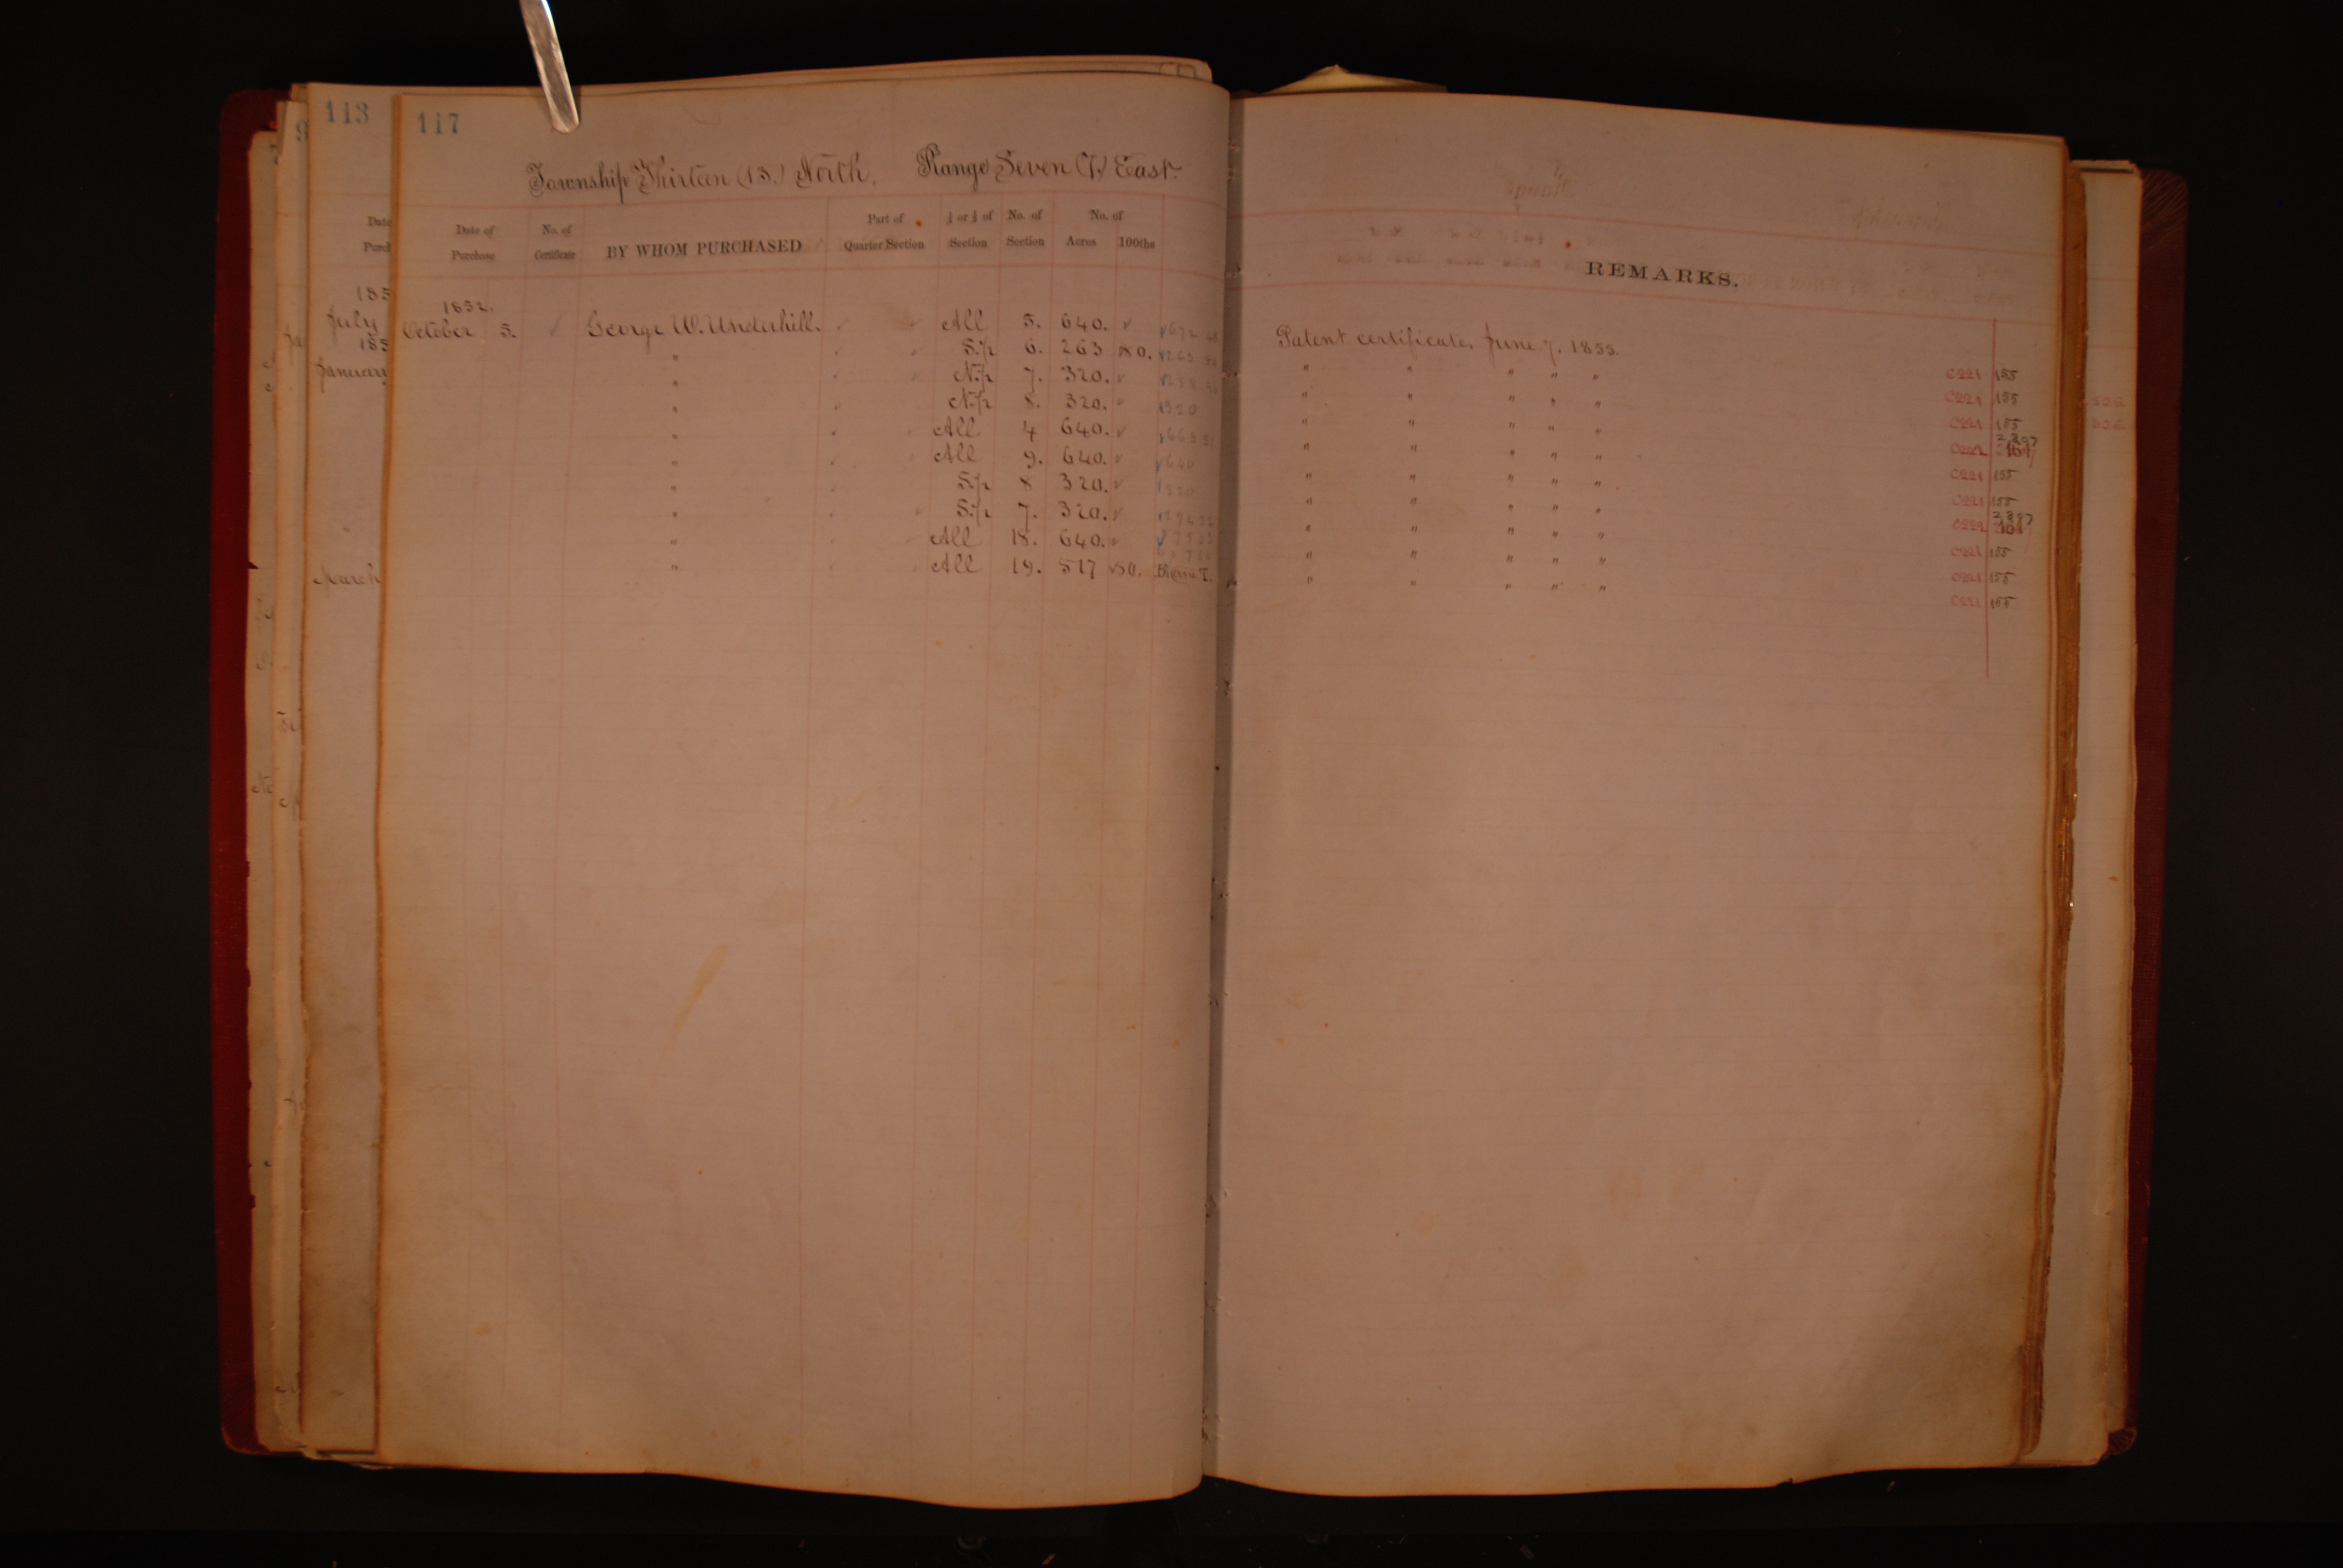 113
117
Township Thirteen (13.) North. Range Seven (7.) East.
Date of Purchase No. of Certificate BY WHOM PURCHASED Part of Quarter Section ½ or ¼ of Section No. of Section No. of Acres 100ths
REMARKS.
1852.
October 5. George W. Underhill. All 5. 640. Patent certificate, June 7. 1855.
" S.½ 6. 263 80. " " " " " C221 155
" N.½ 7. 320. " " " " " C221 155
" N.½ 8. 320. 320 " " " " " C221 155
" All 4 640. " " " " "
" All 9. 640. 640 " " " " " C221 155
" S.½ 8 320. 320 " " " " " C221 155
" S.½ 7. 320. " " " " "
" All 18. 640. " " " " " C221 155
" All 19. 517 50. " " " " " C221 155
C221 155
July
January
March